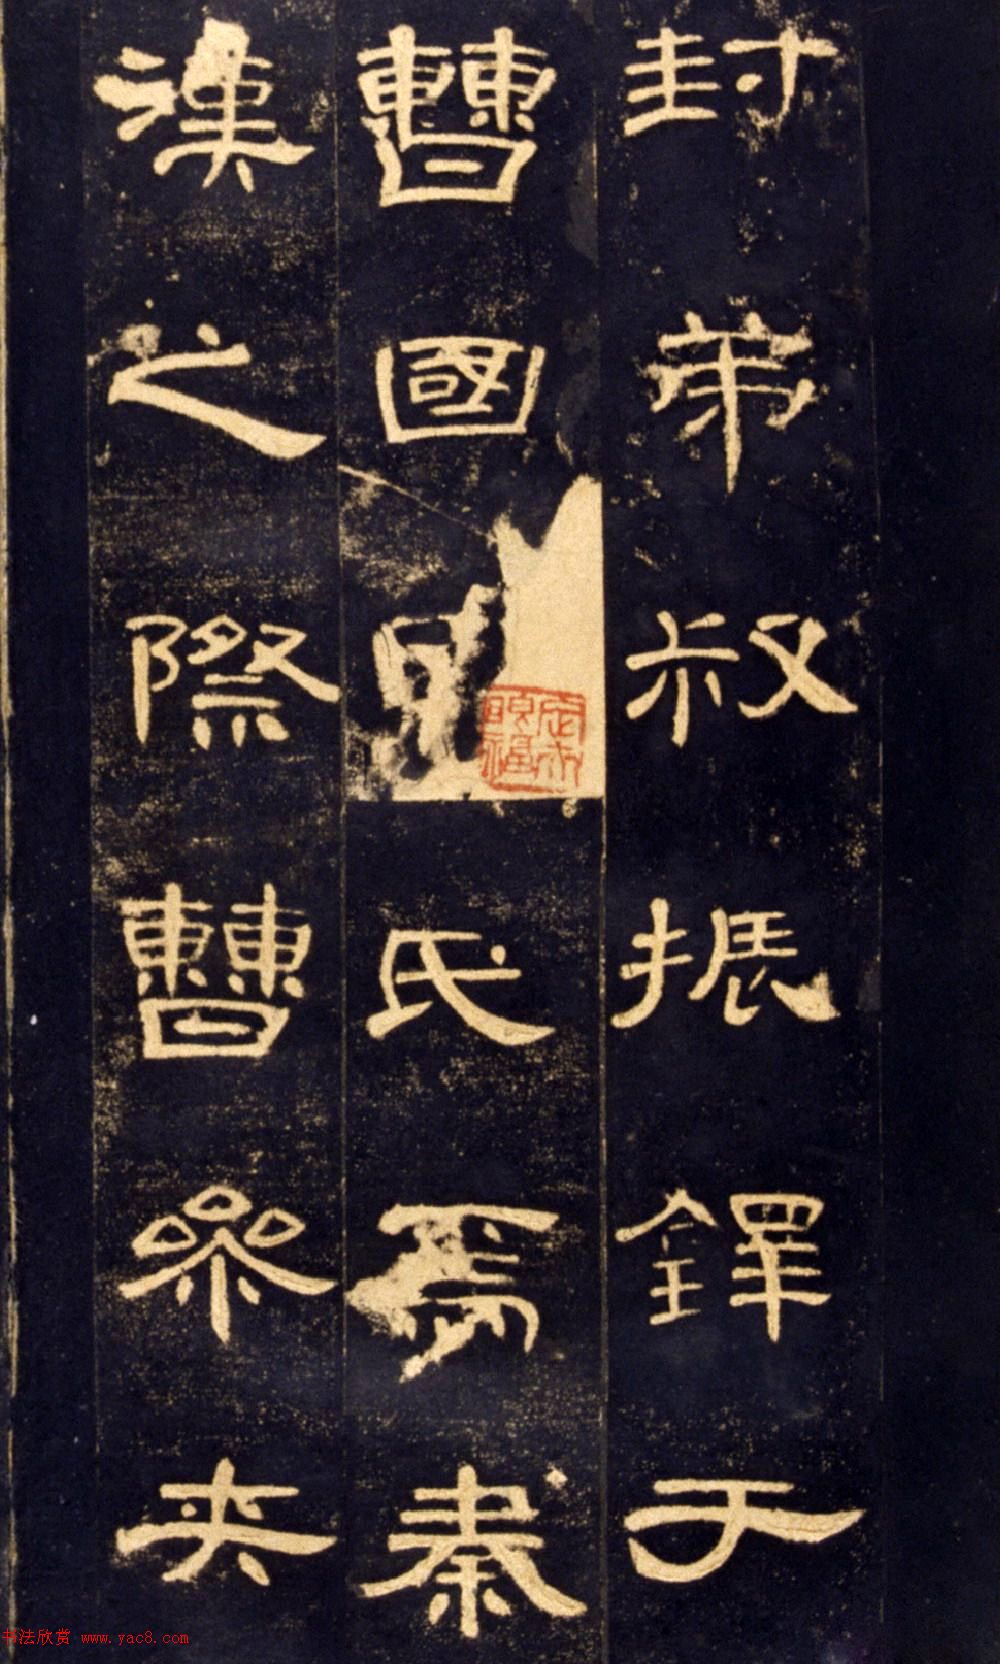 封弟叔振鐸于
曹國氏焉秦
漢之際曹參夾
书法欣赏 www.yac8.com